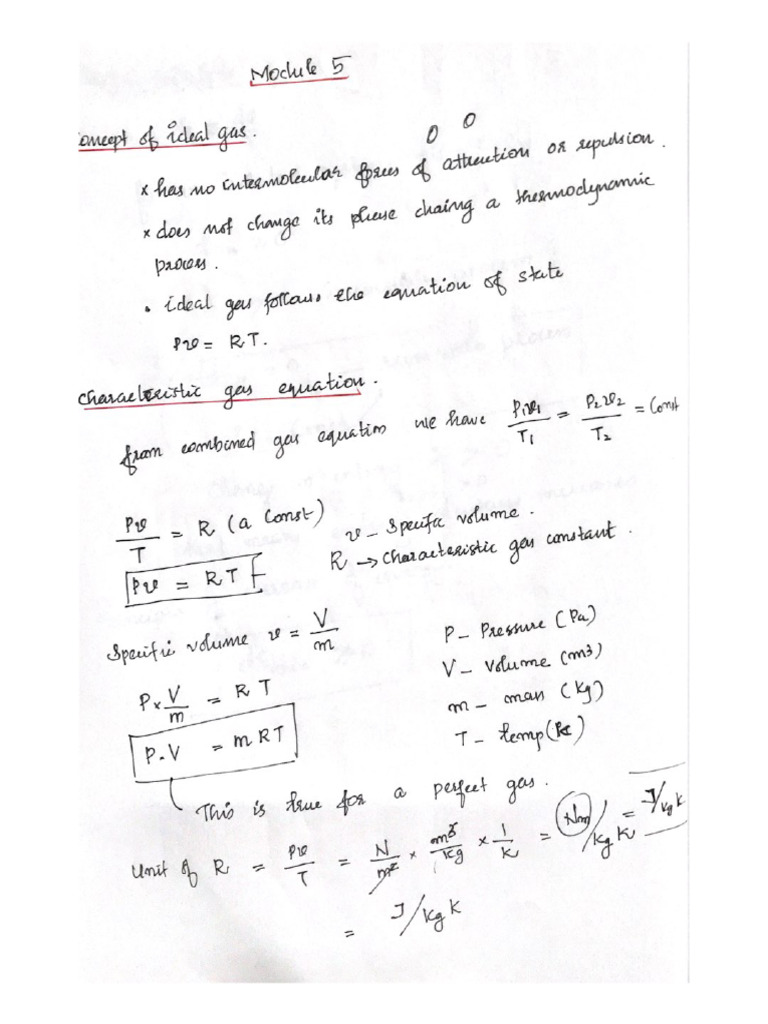 Module 5
oncept of ideal gas.
x has no intermolecular forces of attraction or repulsion.
x does not change its phase during a thermodynamic
process.
• ideal gas follows the equation of state
Pv = RT.
Characteristic gas equation.
from combined gas equation we have P₁v₁/T₁ = P₂v₂/T₂ = Const
Pv/T = R (a Const)
v - Specific volume.
Pv = RT
R → Characteristic gas constant.
Specific volume v = V/m
P - Pressure (Pa)
V - Volume (m³)
P x V/m = RT
m - mass (kg)
P.V = mRT
T - temp (K)
This is true for a perfect gas.
Unit of R = Pv/T = N/m² x m³/kg x 1/K = Nm/kg K = J/kg K
= J/kg K